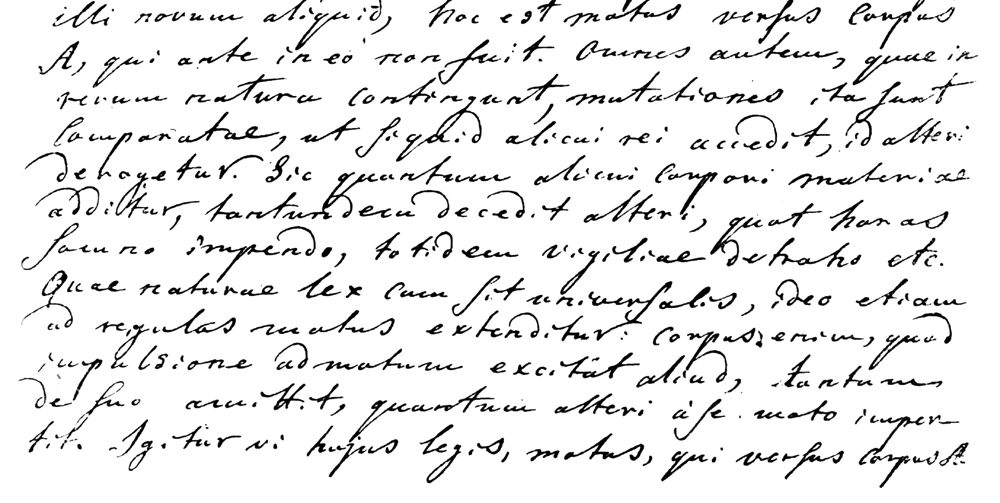 illi novum aliquid, hoc est motus versus corpus
A, qui ante in eo non fuit. Omnes autem, quae in
rerum natura contingunt, mutationes ita sunt
comparatae, ut siquid alicui rei accedit, id alteri
derogetur. Sic quantum alicui corpori materiae
additur, tantundem decedit alteri, quot horas
somno impendo, totidem vigiliae detraho etc.
Quae naturae lex cum sit universalis, ideo etiam
ad regulas motus extenditur: corpus enim, quod
impulsione ad motum excitat aliud, tantum
de suo amittit, quantum alteri à se moto imper-
tit. Igitur vi hujus legis, motus, qui versus corpus A